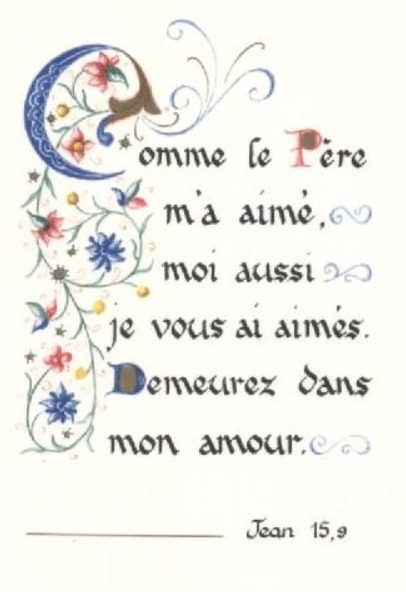 Comme le Père
m'a aimé,
moi aussi
je vous ai aimés.
Demeurez dans
mon amour.
Jean 15,9